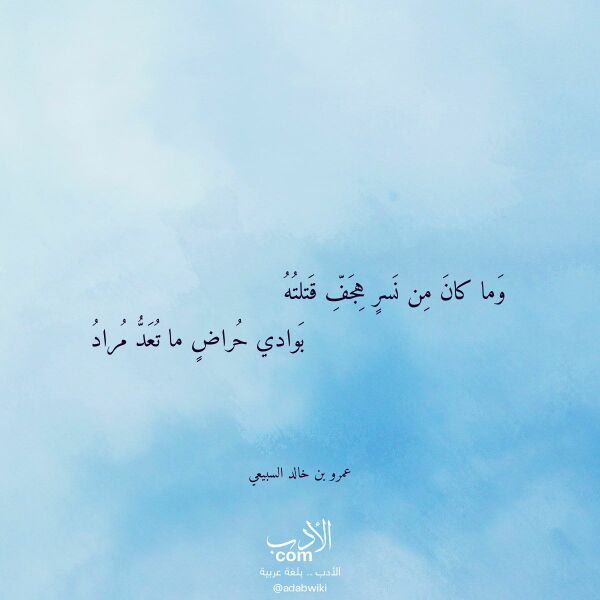 وَما كانَ مِن نَسرٍ هِجَفِّ قَتلتُهُ
بَوادي حُراضٍ ما تُعَدُّ مُرادُ
عمرو بن خالد السبيعي
الأدب
com
الأدب .. بلغة عربية
@adabwiki